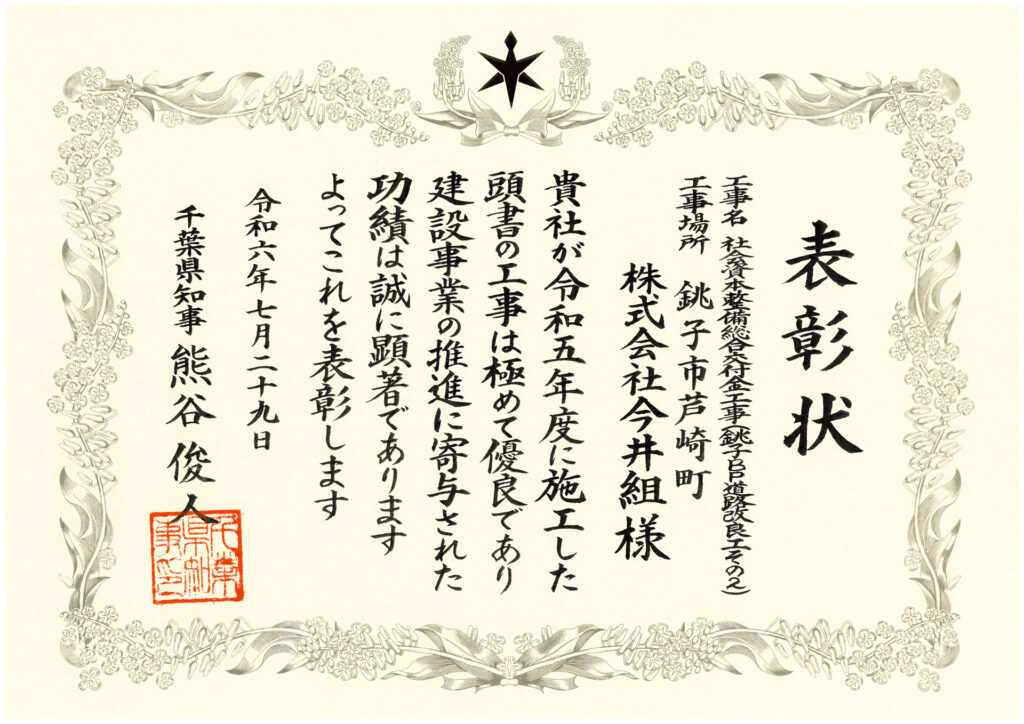 表彰状
工事名 社会資本整備総合交付金工事(銚子BP道路改良工その2)
工事場所 銚子市芦崎町
株式会社今井組様
貴社が令和五年度に施工した
頭書の工事は極めて優良であり
建設事業の推進に寄与された
功績は誠に顕著であります
よってこれを表彰します
令和六年七月二十九日
千葉県知事 熊谷俊人
千葉
県知
事印